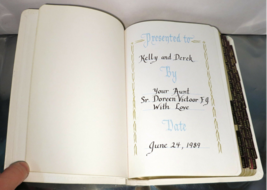 Presented to
Kelly and Derek
By
Your Aunt
Sr. Doreen
With Love
Date
June 24, 1989